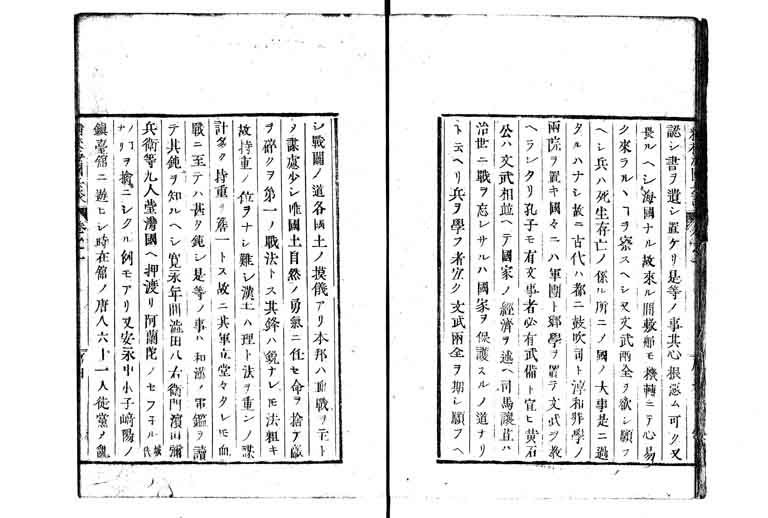 認シ書ヲ遺シ置ケリ是等ノ事其心根惡ム可ク又
畏ルヘシ海國ナル故來ル間敷船モ機轉ニテ心易
ク來ラルヽヿヲ察スヘシ又文武兩全ヲ欲シ願フ
ヘシ兵ハ死生存亡ノ係ル所ニノ國ノ大事是ニ過
タルハナシ故ニ古代ハ都ニ鼓吹司ト淳和奬學ノ
兩院ヲ置キ國々ニハ軍團ト鄕學ヲ置テ文武ヲ敎
ヘラレタリ孔子モ有文事者必有武備ト宣ヒ黄石
公ハ文武相並ヘテ國家ノ經濟ヲ述ヘ司馬讓苴ハ
治世ニ戰ヲ忘レサルハ國家ヲ保護スルノ道ナリ
ト云ヘリ兵ヲ學フ者宜ク文武兩全ヲ期シ願フヘ
シ戰鬪ノ道各國土ノ摸儀アリ本邦ハ血戰ヲ主ト
ノ謀慮少シ唯國土自然ノ勇氣ニ任セ命ヲ捨テ敵
ヲ碎クヲ第一ノ戰法トス其鋒ハ鋭ナレモ法粗キ
故持重ノ位ヲナシ難シ漢土ハ理ト法ヲ重ンノ謀
計多ク持重ヲ第一トス故ニ其軍立堂々タレモ血
戰ニ至テハ甚タ鈍シ是等ノ事ハ和漢ノ軍鑑ヲ讀
テ其鈍ヲ知ルヘシ寛永年間濵田八右衛門濵田彌
兵衛等九人臺灣國ヘ押渡リ阿蘭陀ノセフ子ル
ノヿヲ擒ニシタル例モアリ又安永中小子崎陽ノ
鎮臺館ニ遊ヒシ時在館ノ唐人六十一人徒黨ノ亂